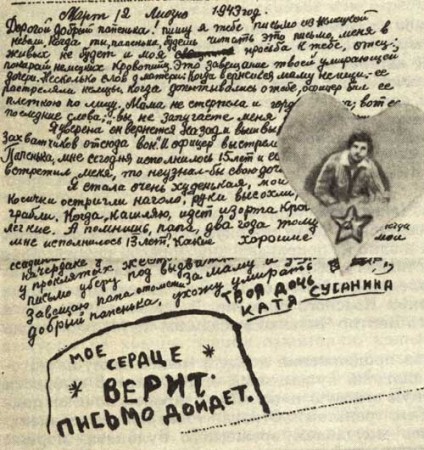 Март 12 Лиозно 1943 год.
Дорогой добрый папенька! пишу я тебе письмо из немецкой
неволи. Когда ты, папенька, будешь читать это письмо, меня в
живых не будет и моя просьба к тебе, отец:
покарай немецких кровопийц. Это завещание твоей умирающей
дочери. Несколько слов о матери. Когда вернешься, маму не ищи. Ее
расстреляли немцы. Когда допытывались о тебе, офицер бил ее
плеткою по лицу. Мама не стерпела и гордо вот ее
последние слова: "вы не запугаете меня
Я уверена он вернется назад и вышвы
захватчиков отсюда вон" и офицер выстрелил
Папенька, мне сегодня исполнилось 15 лет и если
встретил меня, то не узнал бы свою дочь
Я стала очень худенькая, мои
косички остригли наголо, руки высохли
грабли. Когда я кашляю, идет из рта кровь
легкие. А помнишь, папа, два года тому когда
мне исполнилось 13 лет? Какие хорошие мои
на чердаке
у проклятых
письмо уберу под
Завещаю папа: отомсти за маму и
добрый папенька, ухожу умирать
ТВОЯ ДОЧЬ
КАТЯ СУСАНИНА
МОЕ
СЕРДЦЕ
ВЕРИТ.
ПИСЬМО ДОЙДЕТ.